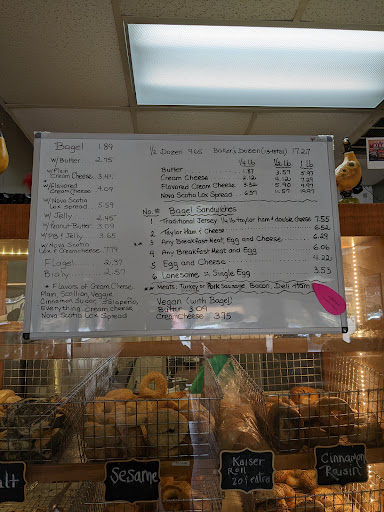 Bagel 1.89
W/Butter 2.75
W/Plain
Cream Cheese 3.49
W/Flavored
Cream Cheese 4.09
W/Nova Scotia
Lox Spread 5.59
W/Jelly 2.45
W/Peanut Butter 3.09
W/PB & Jelly 3.65
W/Nova Scotia
Lox & Cream Cheese
Flagel 2.37
Bialy 2.57
* Flavors of Cream Cheese:
Plain, Scallion, Veggie
Cinnamon Sugar, Jalapeño,
Everything Cream Cheese
Nova Scotia Lox Spread
1/2 Dozen 9.65 Baker's Dozen 17.27
1/4 lb 1/2 lb 1 lb
Butter 1.87 3.57 5.98
Cream Cheese 4.12 7.29
Flavored Cream Cheese 3.32 5.90 9.99
Nova Scotia Lox Spread 6.57 11.57 19.99
No. # Bagel Sandwiches
1 Traditional Jersey 1/4 lb taylor ham & double cheese 7.55
2 Taylor Ham & Cheese 6.52
* 3 Any Breakfast Meat, Egg and Cheese 6.29
* 4 Any Breakfast Meat and Egg 6.06
5 Egg and Cheese 4.22
6 Lonesome Single Egg 3.53
** Meats: Turkey or Pork Sausage Bacon, Deli Ham
Vegan (with Bagel)
Butter 3.09
Cream Cheese 3.75
Sesame
Kaiser
Roll
20¢ extra
Cinnamon
Raisin